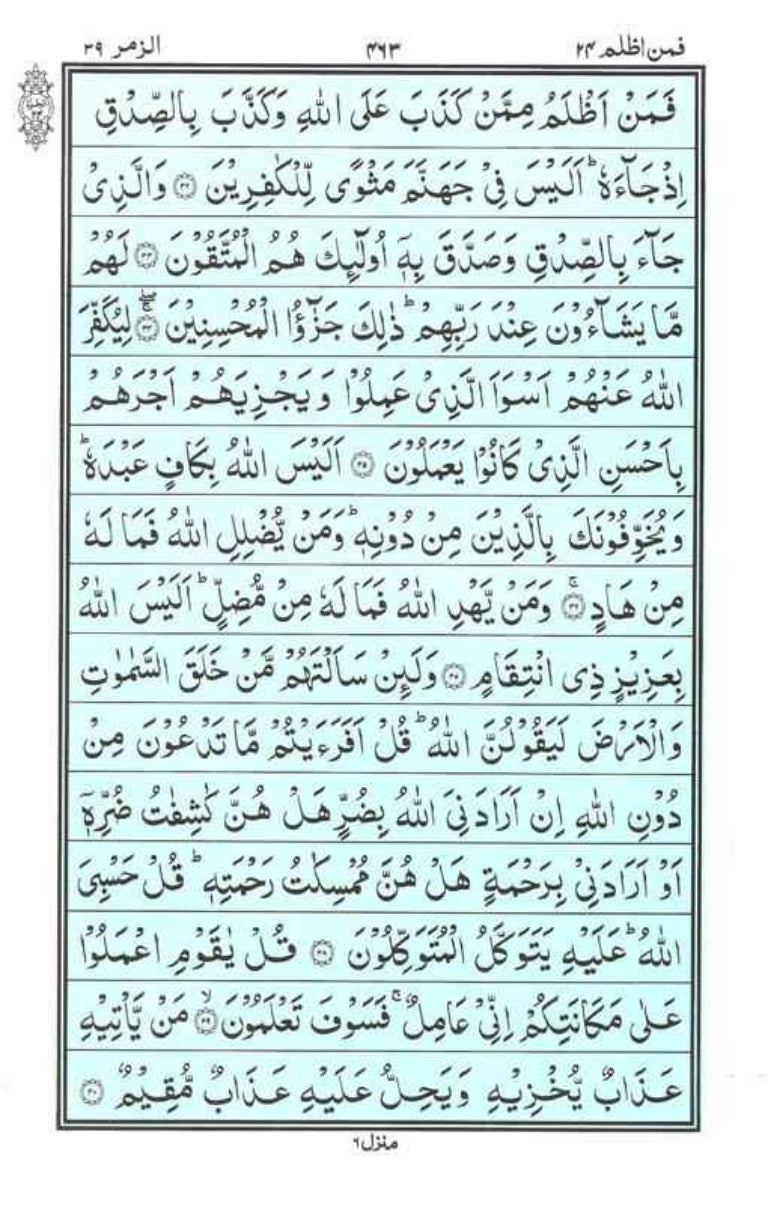 فمن اظلم ۲۴ ۴۶۳ الزمر ۳۹
فَمَنْ اَظْلَمُ مِمَّنْ كَذَبَ عَلَى اللّٰهِ وَكَذَّبَ بِالصِّدْقِ
اِذْ جَآءَهٗ ؕ اَلَيْسَ فِىْ جَهَنَّمَ مَثْوًى لِّلْكٰفِرِيْنَ ۝۳۲ وَالَّذِىْ
جَآءَ بِالصِّدْقِ وَصَدَّقَ بِهٖۤ اُولٰٓئِكَ هُمُ الْمُتَّقُوْنَ ۝۳۳ لَهُمْ
مَّا يَشَآءُوْنَ عِنْدَ رَبِّهِمْ ؕ ذٰلِكَ جَزٰٓؤُا الْمُحْسِنِيْنَ ۝۳۴ لِيُكَفِّرَ
اللّٰهُ عَنْهُمْ اَسْوَاَ الَّذِىْ عَمِلُوْا وَيَجْزِيَهُمْ اَجْرَهُمْ
بِاَحْسَنِ الَّذِىْ كَانُوْا يَعْمَلُوْنَ ۝۳۵ اَلَيْسَ اللّٰهُ بِكَافٍ عَبْدَهٗ ؕ
وَيُخَوِّفُوْنَكَ بِالَّذِيْنَ مِنْ دُوْنِهٖ ؕ وَمَنْ يُّضْلِلِ اللّٰهُ فَمَا لَهٗ
مِنْ هَادٍ ۚ۝۳۶ وَمَنْ يَّهْدِ اللّٰهُ فَمَا لَهٗ مِنْ مُّضِلٍّ ؕ اَلَيْسَ اللّٰهُ
بِعَزِيْزٍ ذِى انْتِقَامٍ ۝۳۷ وَلَئِنْ سَاَلْتَهُمْ مَّنْ خَلَقَ السَّمٰوٰتِ
وَالْاَرْضَ لَيَقُوْلُنَّ اللّٰهُ ؕ قُلْ اَفَرَءَيْتُمْ مَّا تَدْعُوْنَ مِنْ
دُوْنِ اللّٰهِ اِنْ اَرَادَنِىَ اللّٰهُ بِضُرٍّ هَلْ هُنَّ كٰشِفٰتُ ضُرِّهٖۤ
اَوْ اَرَادَنِىْ بِرَحْمَةٍ هَلْ هُنَّ مُمْسِكٰتُ رَحْمَتِهٖ ؕ قُلْ حَسْبِىَ
اللّٰهُ ؕ عَلَيْهِ يَتَوَكَّلُ الْمُتَوَكِّلُوْنَ ۝۳۸ قُلْ يٰقَوْمِ اعْمَلُوْا
عَلٰى مَكَانَتِكُمْ اِنِّىْ عَامِلٌ ۚ فَسَوْفَ تَعْلَمُوْنَ ۙ۝۳۹ مَنْ يَّاْتِيْهِ
عَذَابٌ يُّخْزِيْهِ وَيَحِلُّ عَلَيْهِ عَذَابٌ مُّقِيْمٌ ۝۴۰
منزل ٦